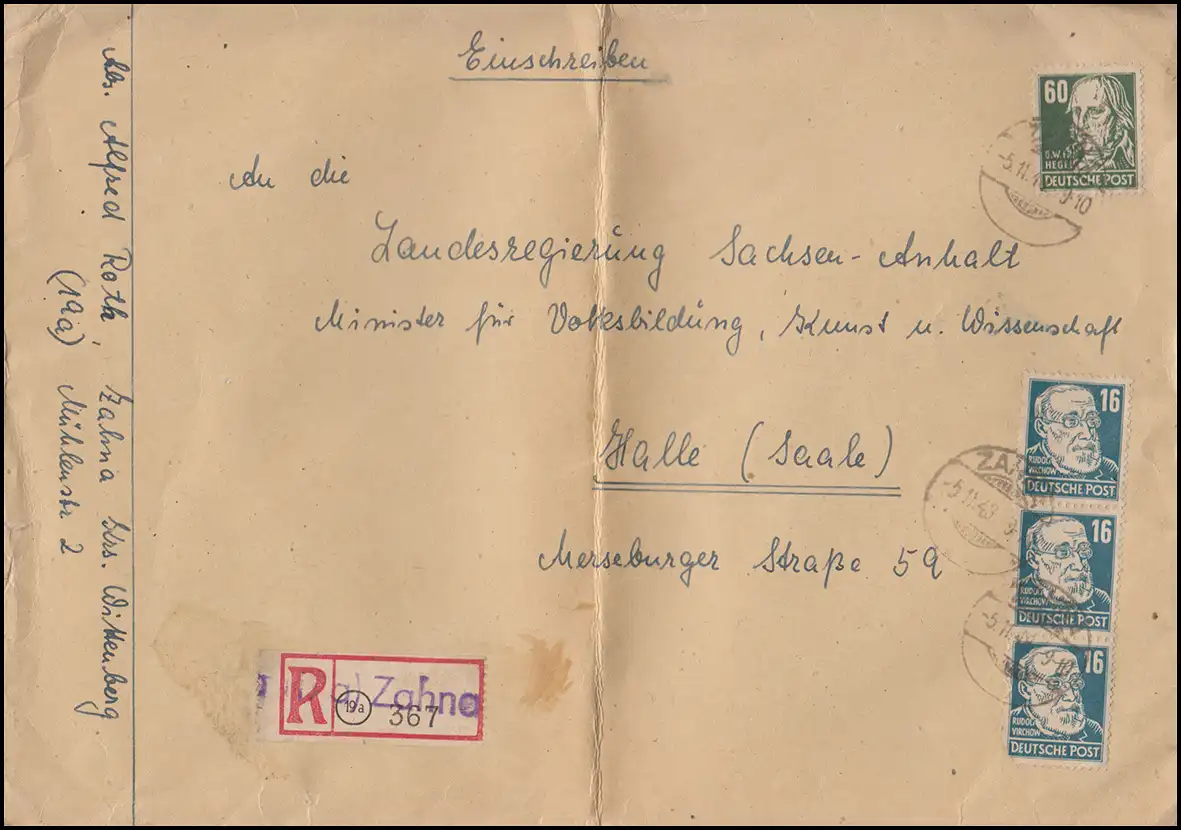 Einschreiben
An die
Landesregierung Sachsen-Anhalt
Minister für Volksbildung, Kunst u. Wissenschaft
Halle (Saale)
Merseburger Straße 59
Abs. Alfred Roth, Zahna Krs. Wittenberg
(19a) Mühlenstr 2
60
HEGEL
DEUTSCHE POST
-5.11. 9-10
16
RUDOLF
VIRCHOW
DEUTSCHE POST
ZA
-5.11.48 9-
16
RUDOLF
VIRCHOW
DEUTSCHE POST
-5.11. 9-10
16
RUDOLF
VIRCHOW
DEUTSCHE POST
R a) Zahna
19a 367